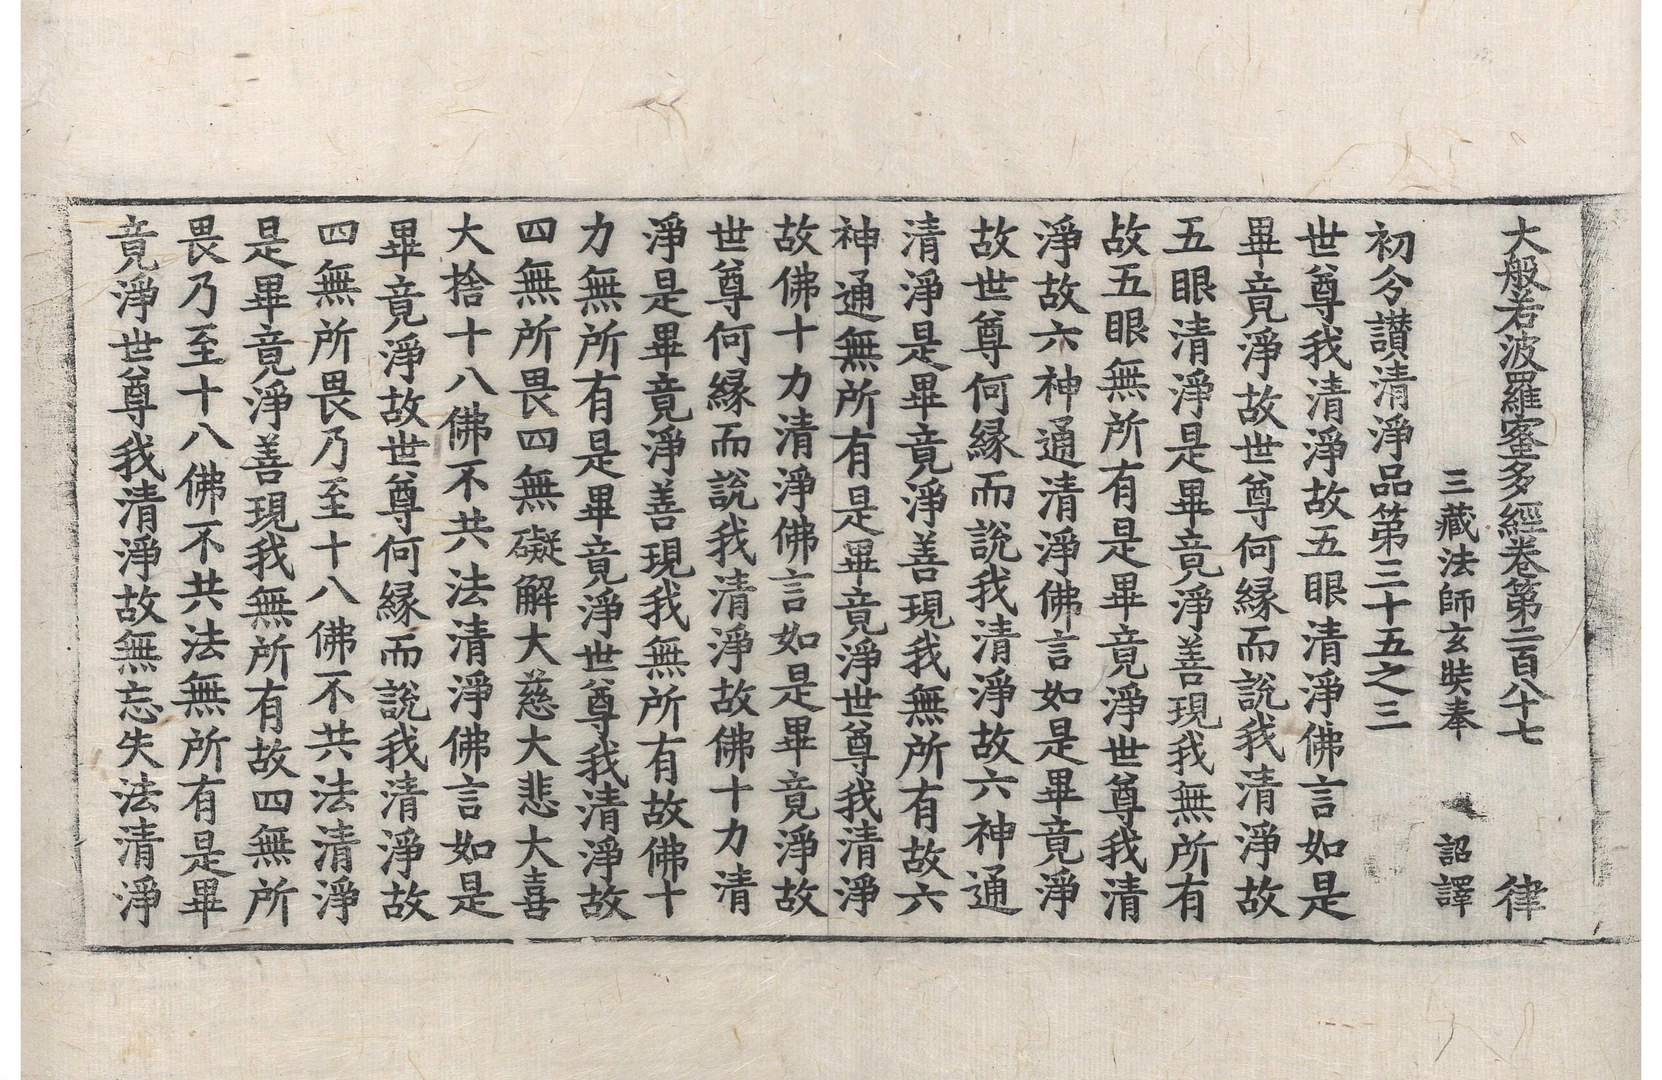 大般若波羅蜜多經卷第二百八十七　律
三藏法師玄奘奉　詔譯
初分讃清淨品第三十五之三
世尊我清淨故五眼清淨佛言如是
畢竟淨故世尊何縁而說我清淨故
五眼清淨是畢竟淨善現我無所有
故五眼無所有是畢竟淨世尊我清
淨故六神通清淨佛言如是畢竟淨
故世尊何縁而說我清淨故六神通
清淨是畢竟淨善現我無所有故六
神通無所有是畢竟淨世尊我清淨
故佛十力清淨佛言如是畢竟淨故
世尊何縁而說我清淨故佛十力清
淨是畢竟淨善現我無所有故佛十
力無所有是畢竟淨世尊我清淨故
四無所畏四無礙解大慈大悲大喜
大捨十八佛不共法清淨佛言如是
畢竟淨故世尊何縁而說我清淨故
四無所畏乃至十八佛不共法清淨
是畢竟淨善現我無所有故四無所
畏乃至十八佛不共法無所有是畢
竟淨世尊我清淨故無忘失法清淨